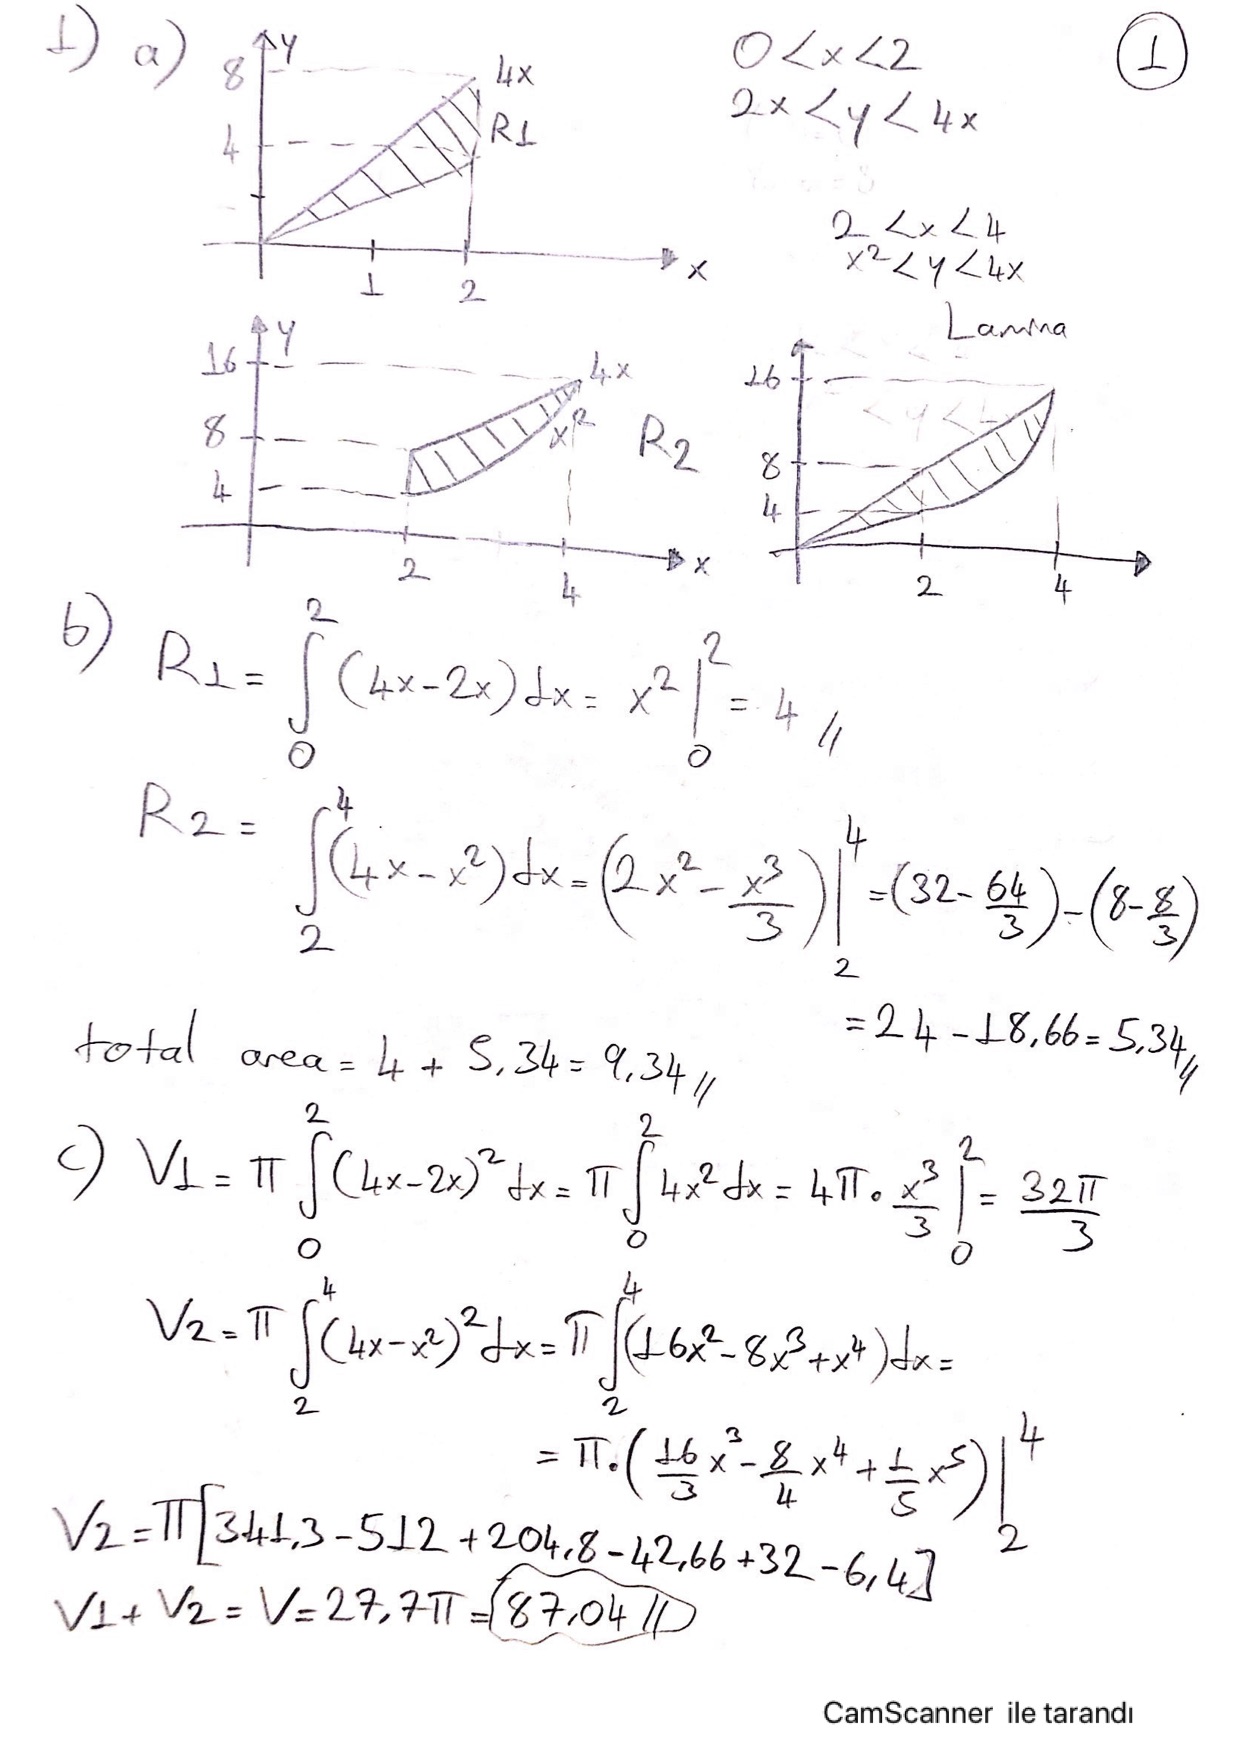 1) a)
y
8
4
4x
R1
1
2
x
0 < x < 2
2x < y < 4x
1
2 < x < 4
x² < y < 4x
y
16
8
4
4x
x²
R2
2
4
x
Lamina
16
8
4
2
4
b) R1 = ∫₀² (4x-2x) dx = x² |₀² = 4 //
R2 = ∫₂⁴ (4x - x²) dx = (2x² - x³/3) |₂⁴ = (32 - 64/3) - (8 - 8/3)
= 24 - 18,66 = 5,34 //
total area = 4 + 5,34 = 9,34 //
c) V1 = π ∫₀² (4x-2x)² dx = π ∫₀² 4x² dx = 4π . x³/3 |₀² = 32π/3
V2 = π ∫₂⁴ (4x-x²)² dx = π ∫₂⁴ (16x² - 8x³ + x⁴) dx =
= π . (16/3 x³ - 8/4 x⁴ + 1/5 x⁵) |₂⁴
V2 = π [341,3 - 512 + 204,8 - 42,66 + 32 - 6,4]
V1 + V2 = V = 27,7π = 87,04 //
CamScanner ile tarandı